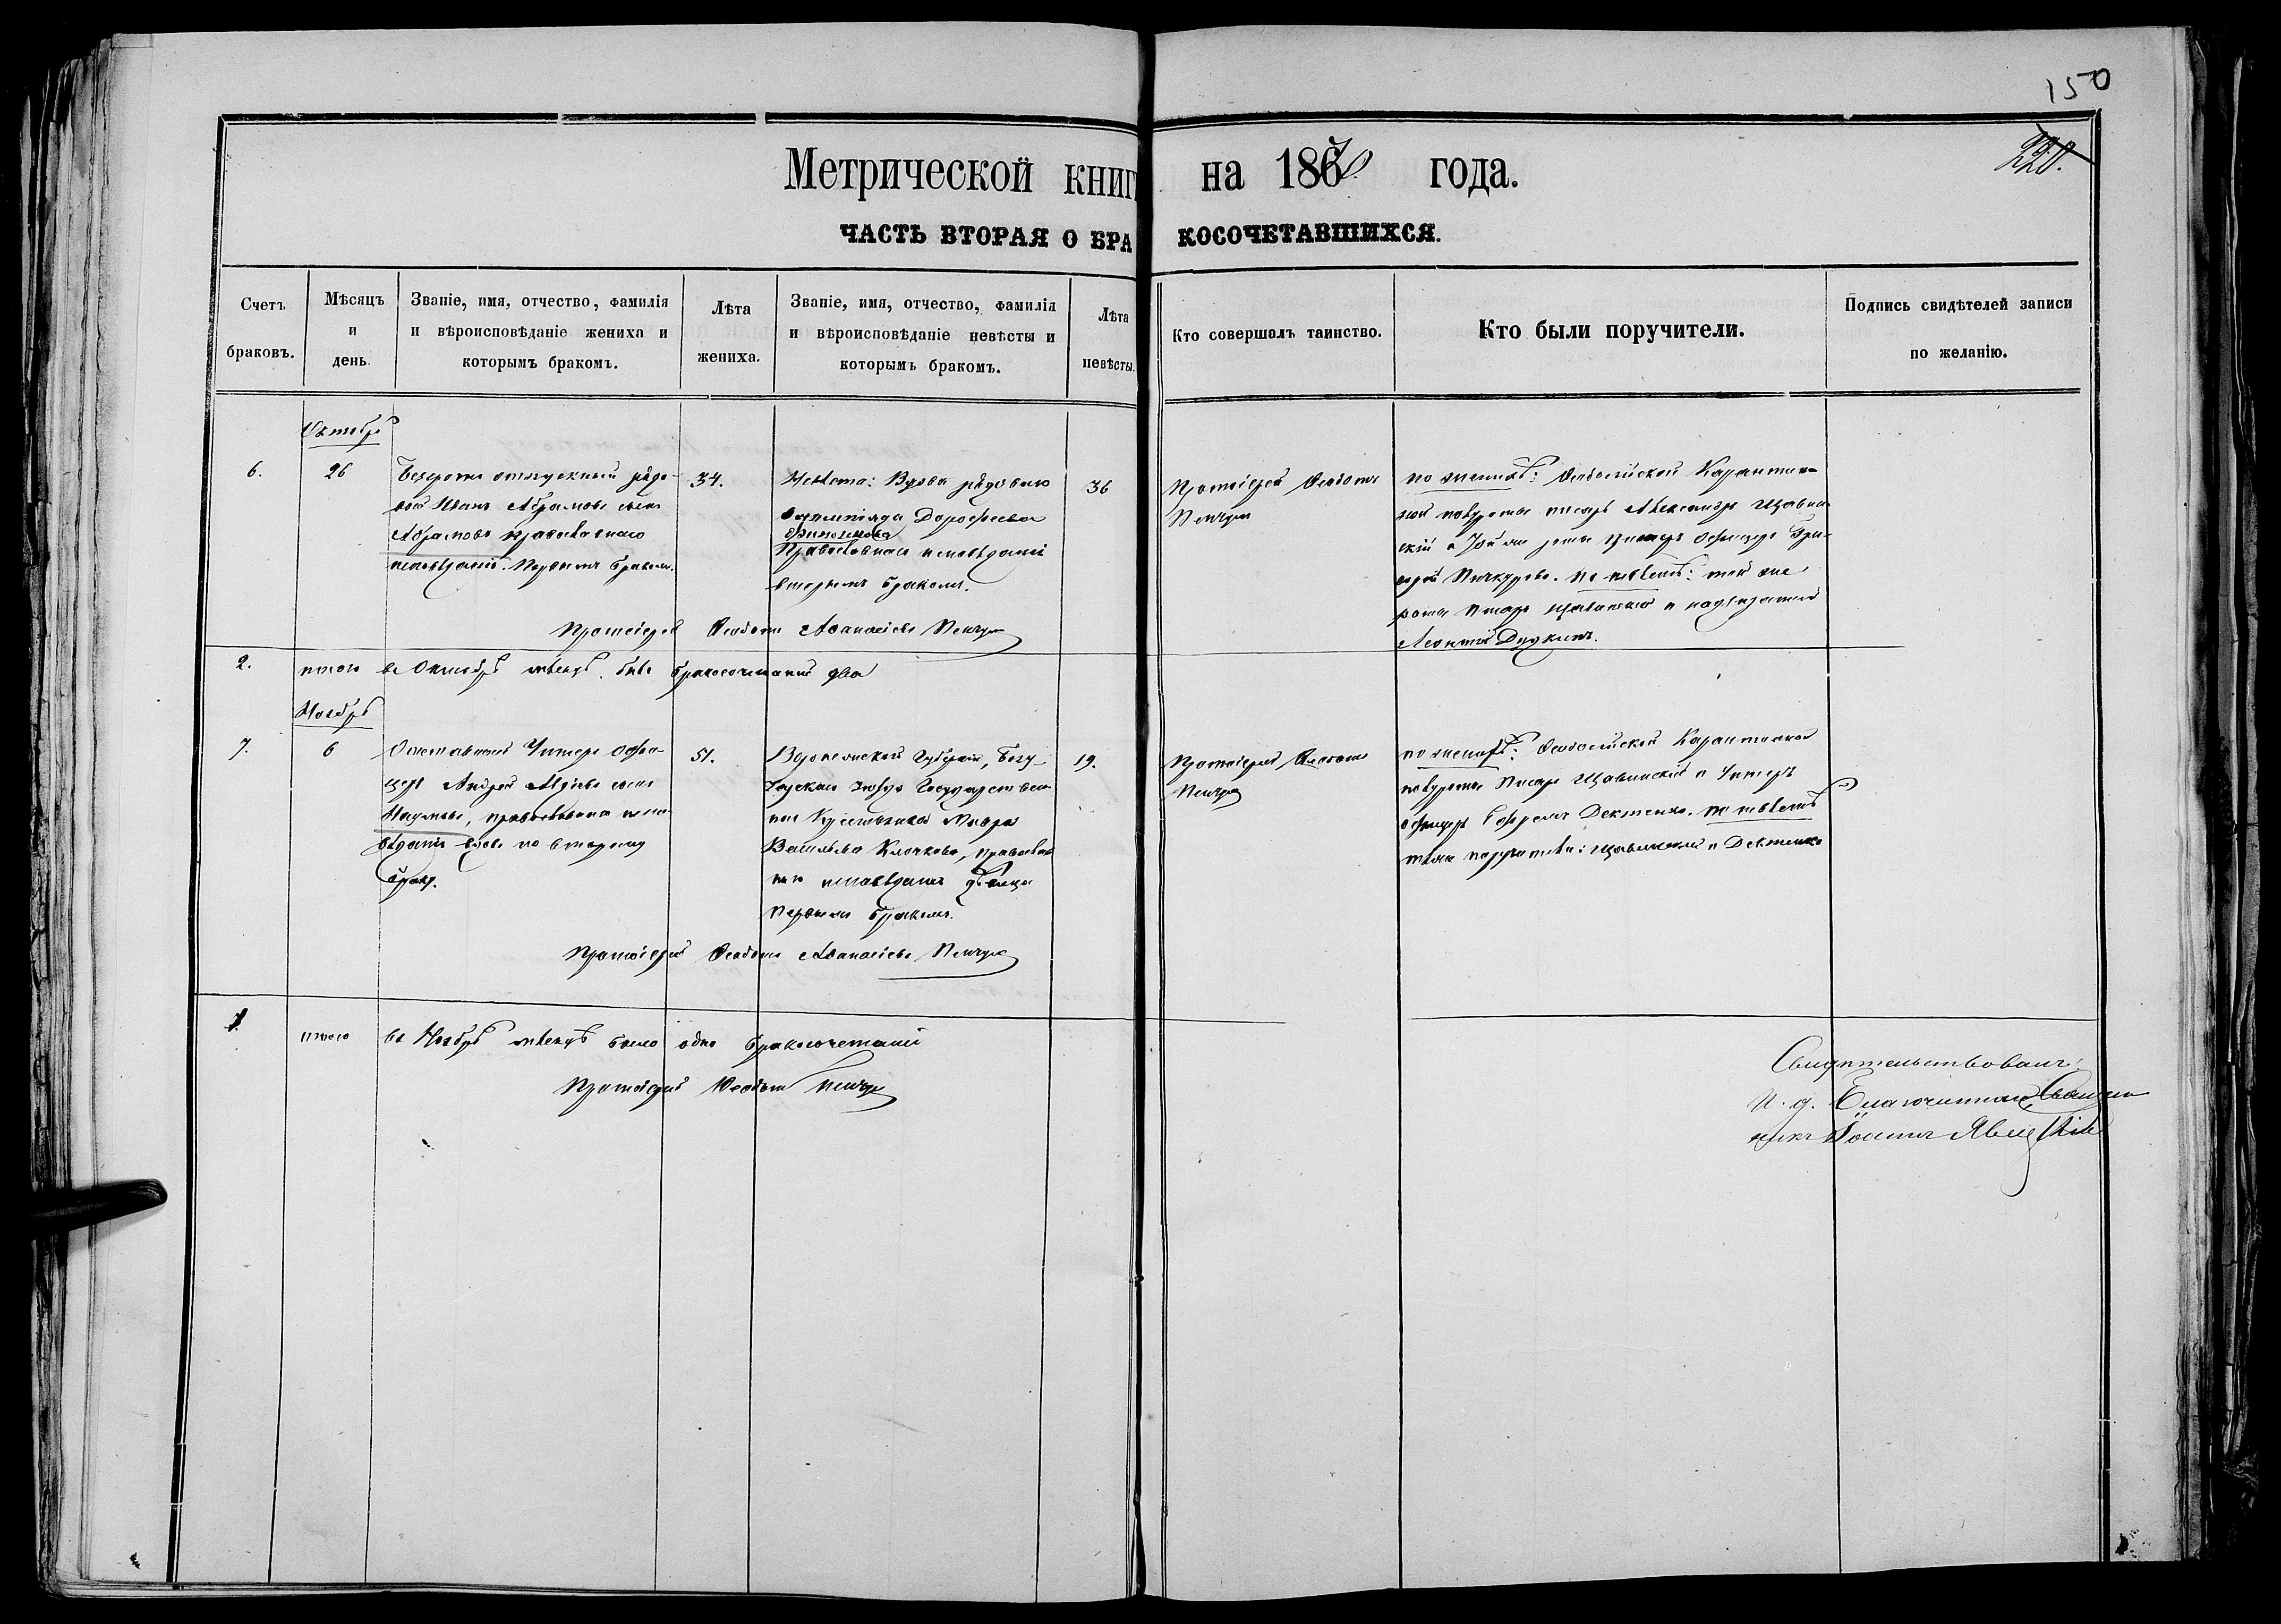 150
220.
Метрической книг на 1870 года.
ЧАСТЬ ВТОРАЯ О БРАКОСОЧЕТАВШИХСЯ.
Счетъ браковъ.
Мѣсяцъ и день.
Званіе, имя, отчество, фамилія и вѣроисповѣданіе жениха и которымъ бракомъ.
Лѣта жениха.
Званіе, имя, отчество, фамилія и вѣроисповѣданіе невѣсты и которымъ бракомъ.
Лѣта невѣсты.
Кто совершалъ таинство.
Кто были поручители.
Подпись свидѣтелей записи по желанію.
Октябрь
6.
26
Безсрочно отпускный рядо-
вой Иванъ Абрамовъ сынъ
Абрамовъ православнаго
исповѣданія. Первымъ бракомъ.
34.
Невѣста: Вдова рядоваго
Дорофеева
Православнаго исповѣданія
вторымъ бракомъ.
36
Протоіерей Ѳеодотъ
по женихѣ: Ѳеодосійской Карантин-
ной полуроты писарь Александръ Щавин-
скій и той же роты Унтеръ Офицеръ Гри-
горій. По невѣстѣ: той же
роты Писарь Щавинскій и надзиратель
Леонтій Дудкинъ.
Протоіерей Ѳеодотъ Аѳанасіевъ
2.
итого въ Октябрѣ мѣсяцѣ было бракосочетаній два
Ноябрь
7.
6
Отставный Унтеръ Офи-
церъ Андрей сынъ
Наумовъ, православнаго испо-
вѣданія вдовъ по второму
браку.
51.
Воронежской Губерніи, Богу-
чарскаго уѣзда Государствен-
ная Крестьянка Мавра
Васильева Клочкова, православ-
наго исповѣданія дѣвица
первымъ бракомъ.
19.
Протоіерей Ѳеодотъ
по женихѣ: Ѳеодосійской Карантинной
полуроты Писарь Щавинскій и Унтеръ
офицеръ Ефремъ Дектенко. по невѣстѣ
тѣже поручители: Щавинскій и Дектенко
Протоіерей Ѳеодотъ Аѳанасіевъ
1.
итого въ Ноябрѣ мѣсяцѣ было одно бракосочетаніе
Протоіерей Ѳеодотъ
Свидѣтельствовалъ:
И. д. Благочиннаго, Священ-
никъ Іоаннъ